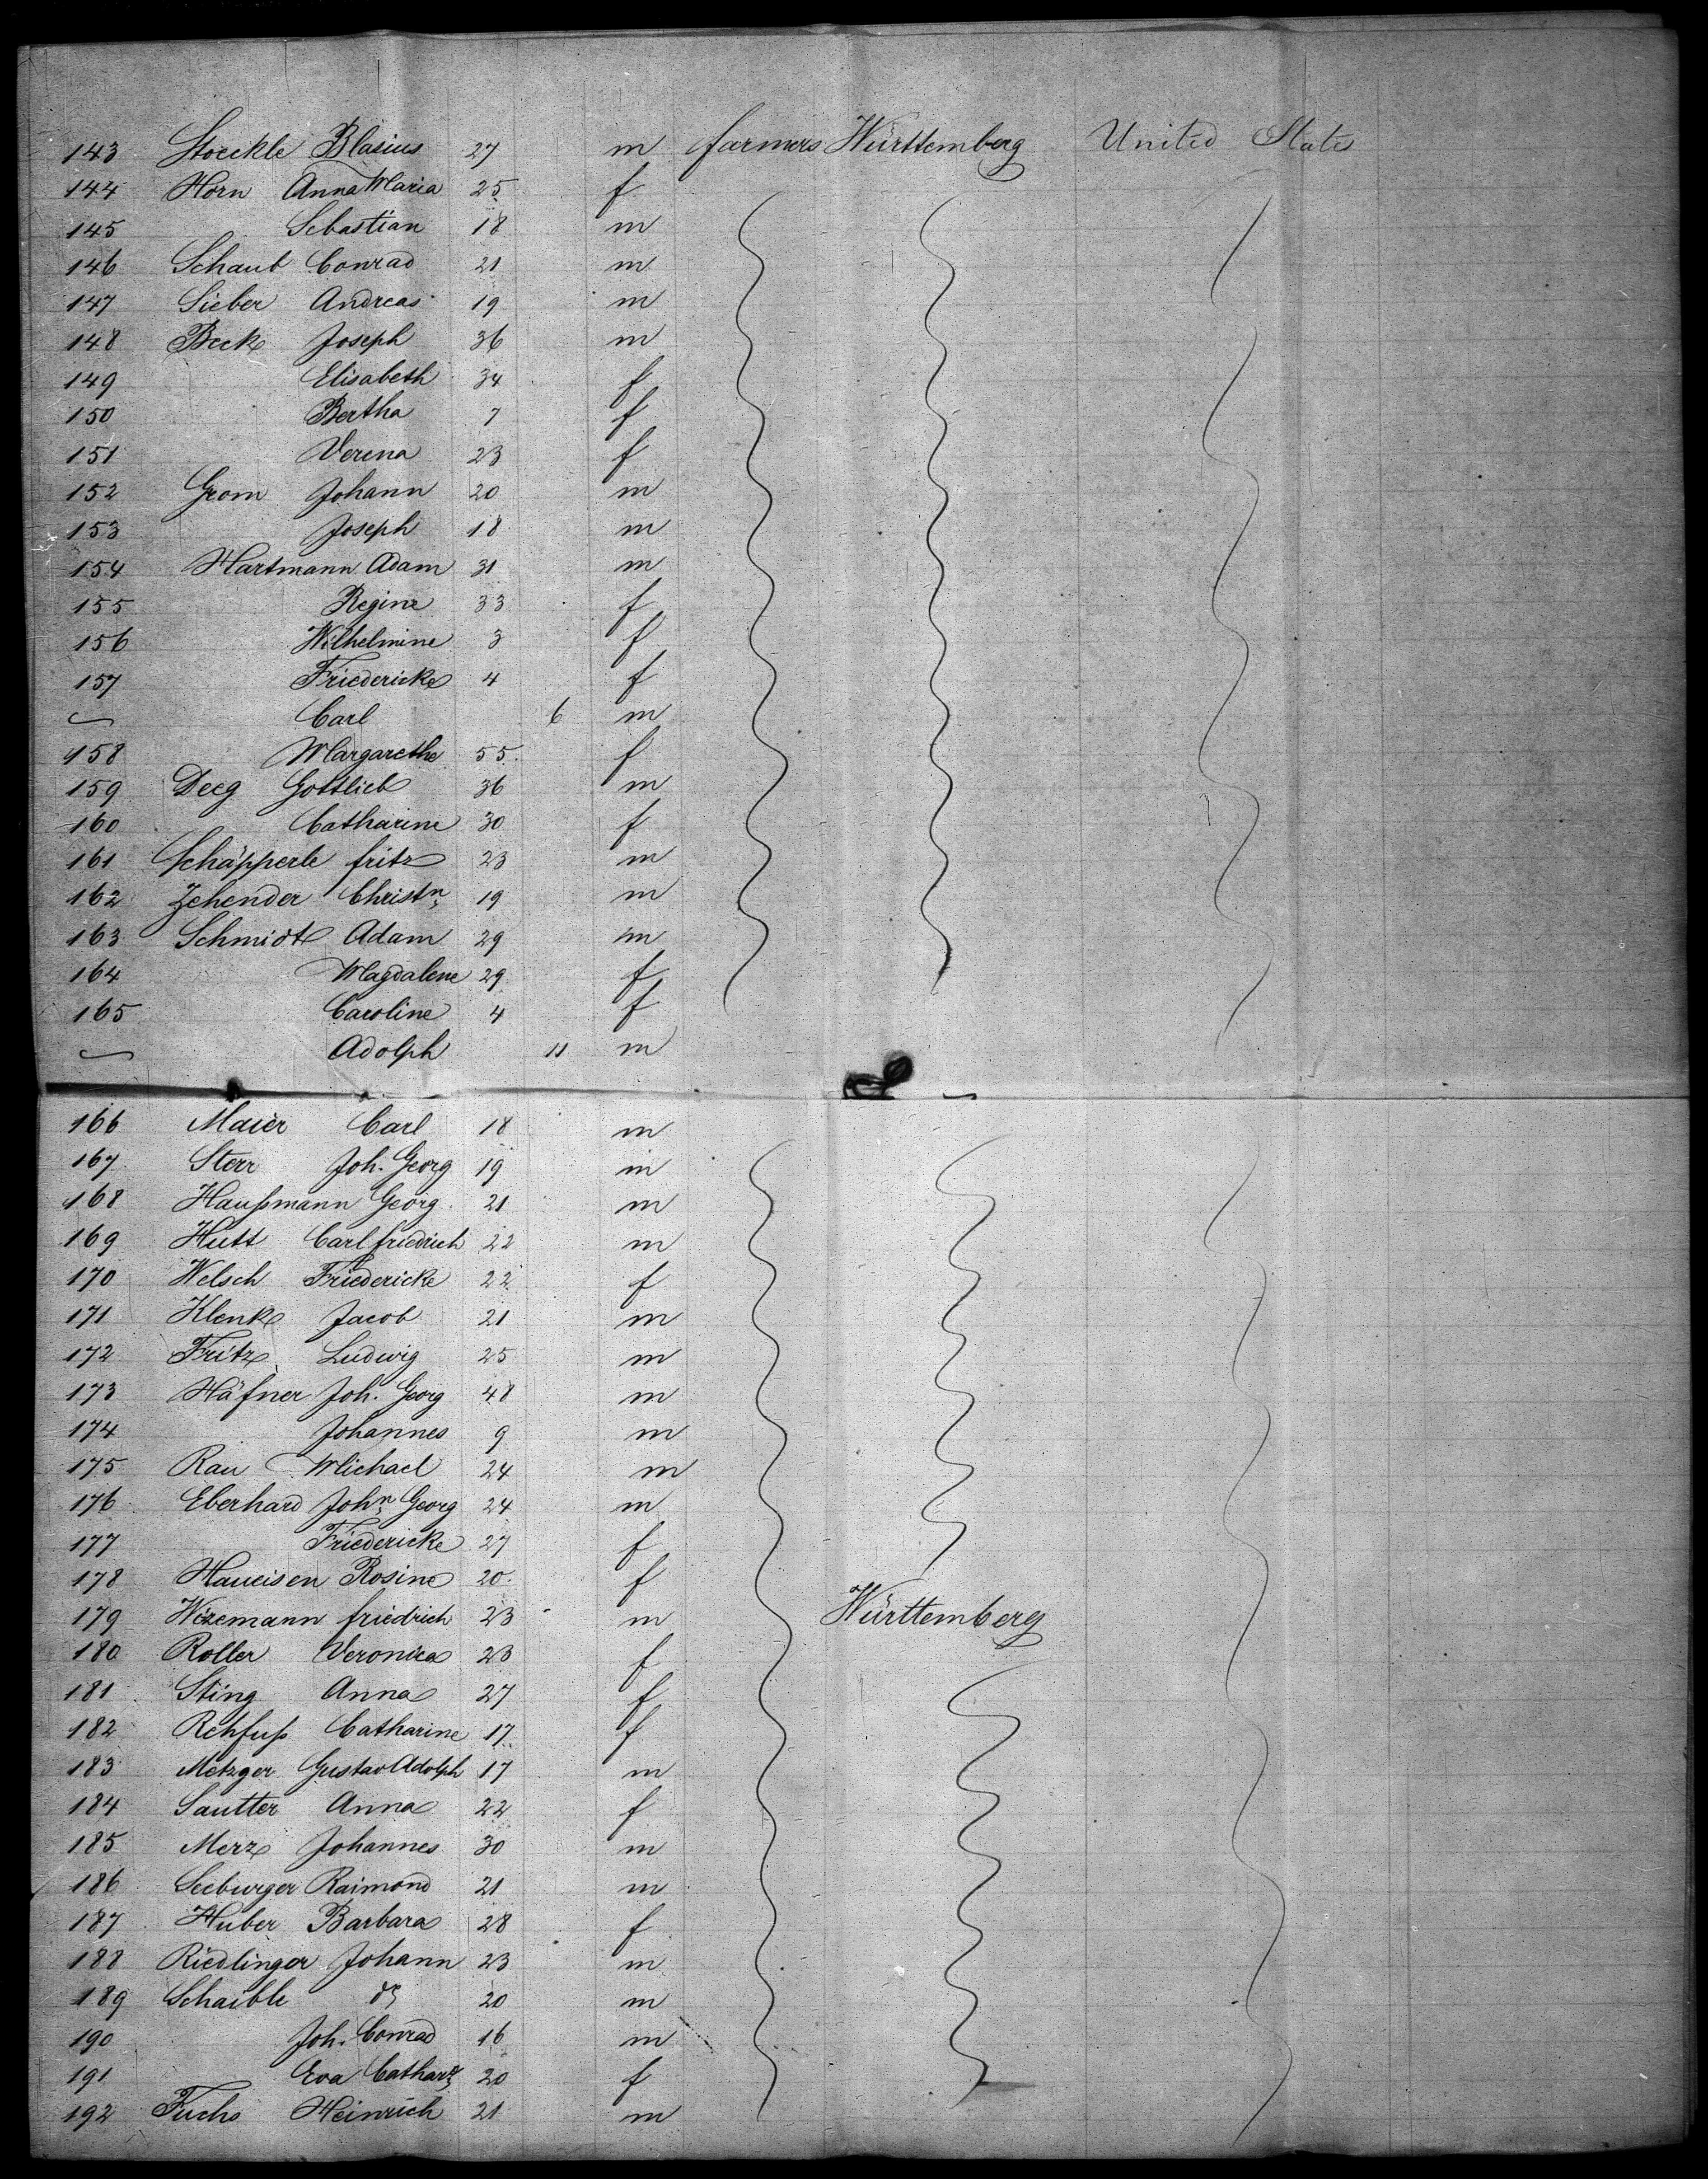 143 Stoeckle Blasius 27 m farmers Württemberg United States
144 Horn Anna Maria 25 f
145 Sebastian 18 m
146 Schaub Conrad 21 m
147 Sieber Andreas 19 m
148 Beck Joseph 36 m
149 Elisabeth 34 f
150 Bertha 7 f
151 Verena 23 f
152 Grom Johann 20 m
153 Joseph 18 m
154 Hartmann Adam 31 m
155 Regine 33 f
156 Wilhelmine 3 f
157 Friedericke 4 f
Carl 6 m
158 Margarethe 55 f
159 Deeg Gottlieb 36 m
160 Catharine 30 f
161 Schäpperle fritz 23 m
162 Zehender Christn 19 m
163 Schmidt Adam 29 m
164 Magdalene 29 f
165 Caroline 4 f
Adolph 11 m
166 Maier Carl 18 m
167 Sterr Joh. Georg 19 m
168 Haußmann Georg 21 m
169 Hutt Carl friedrich 22 m
170 Welsch Friedericke 22 f
171 Klenk Jacob 21 m
172 Fritz Ludwig 25 m
173 Häfner Joh. Georg 48 m
174 Johannes 9 m
175 Rau Michael 24 m
176 Eberhard John Georg 24 m
177 Friedericke 27 f
178 Haueisen Rosine 20 f
179 Wizemann friedrich 23 m Württemberg
180 Roller Veronica 23 f
181 Sting Anna 27 f
182 Rehfuß Catharine 17 f
183 Metzger Gustav Adolph 17 m
184 Sautter Anna 22 f
185 Merz Johannes 30 m
186 Seeburger Raimond 21 m
187 Huber Barbara 28 f
188 Riedlinger Johann 23 m
189 Schaible do 20 m
190 Joh. Conrad 16 m
191 Eva Cathar 20 f
192 Fuchs Heinrich 21 m